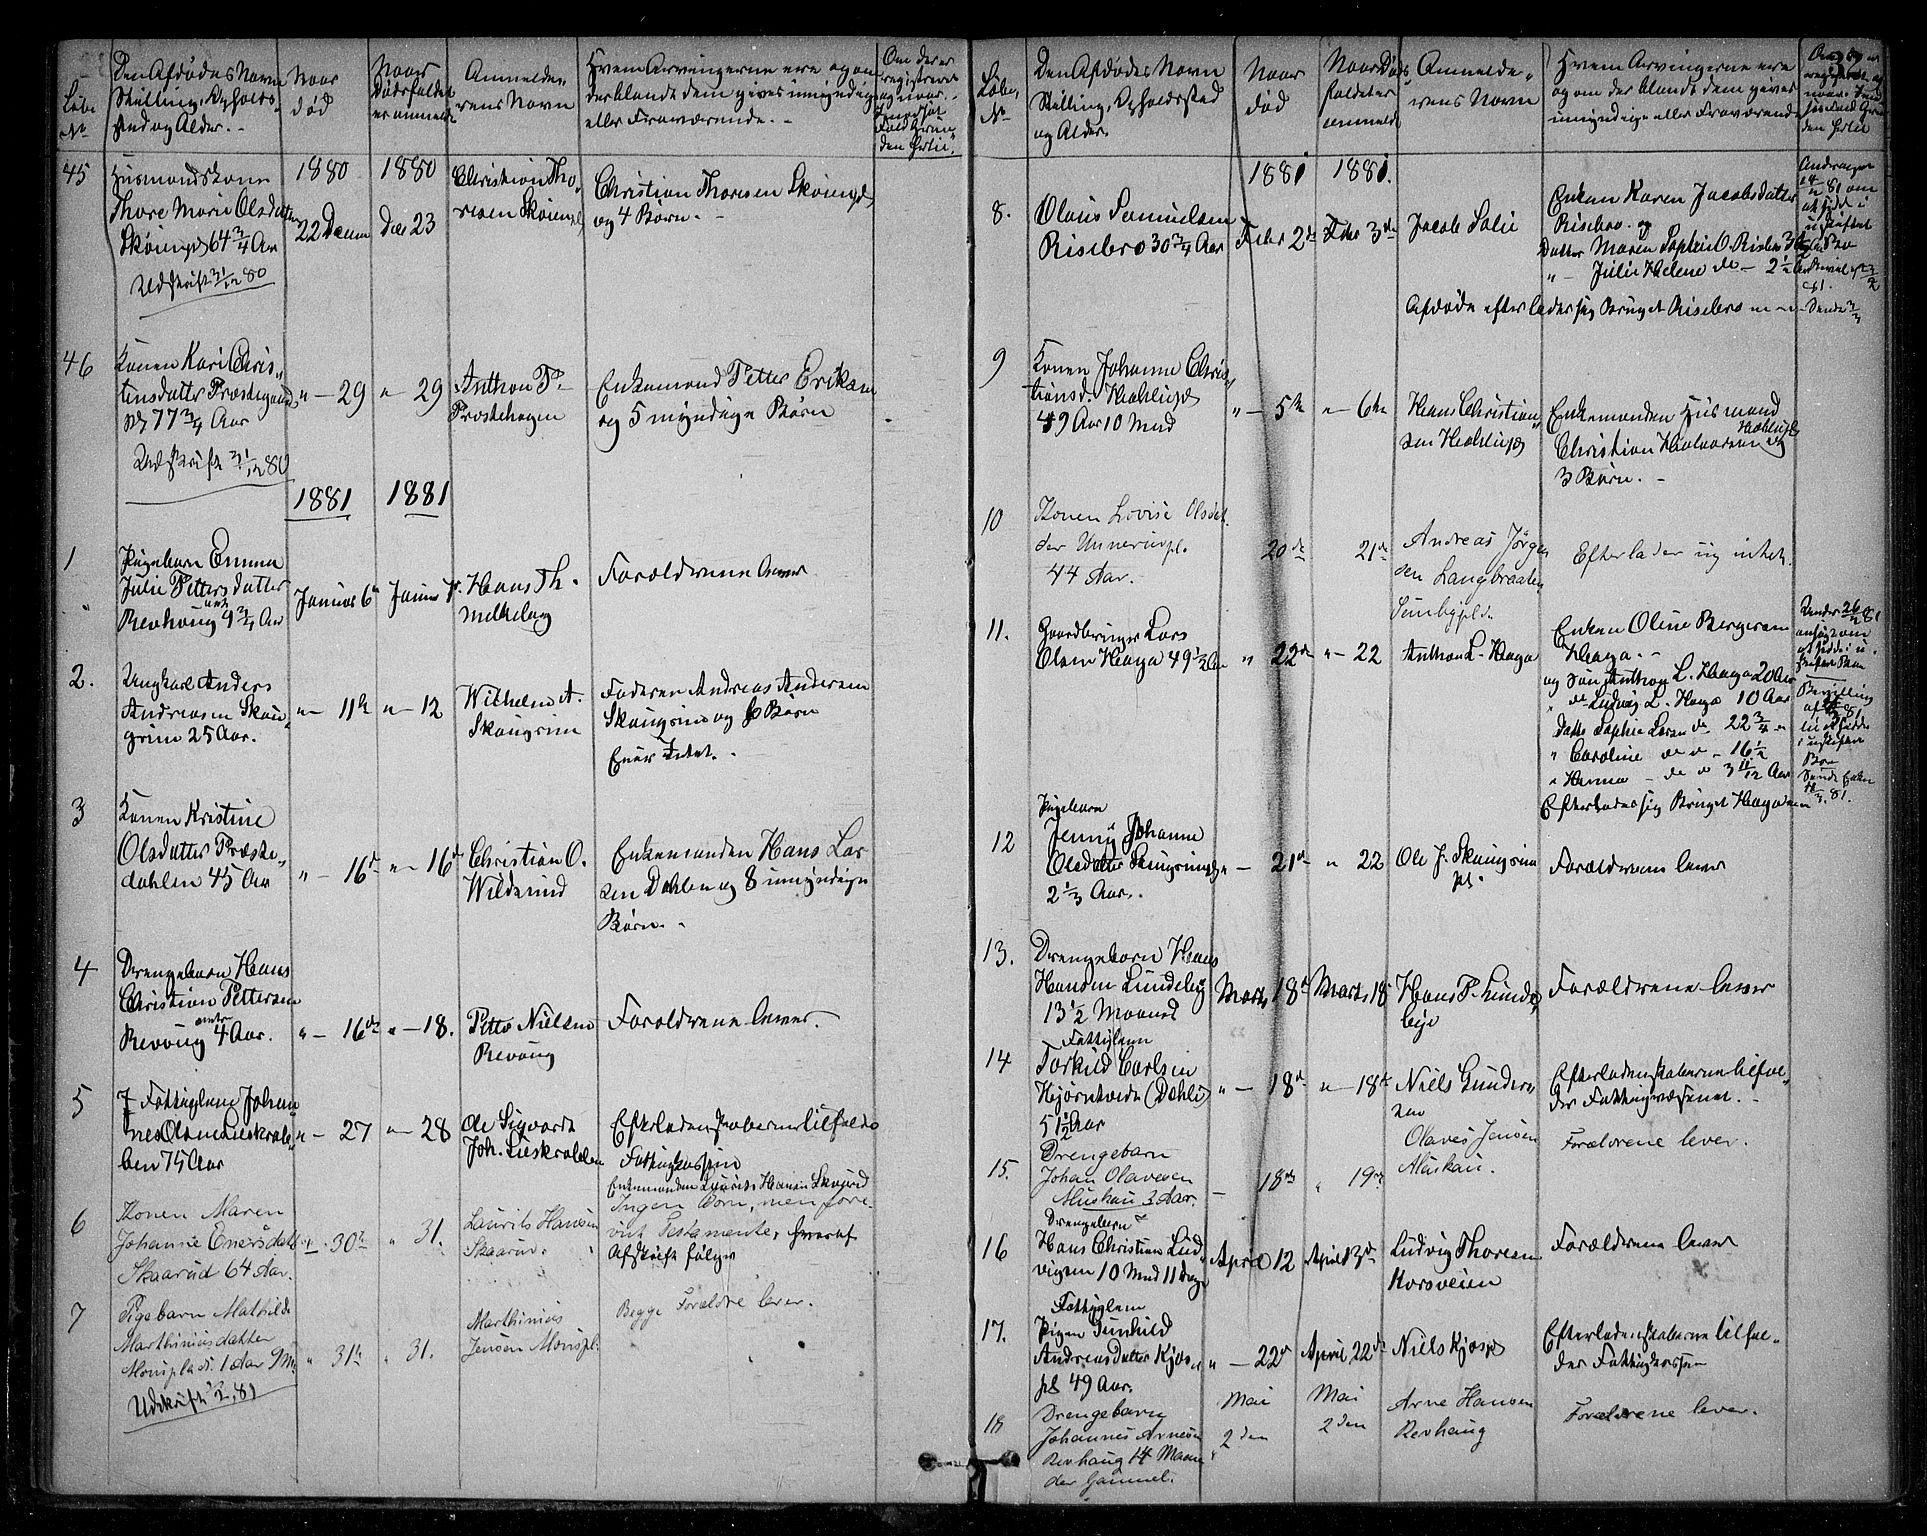 Løbe No
Den Afdødes Navn
Stilling, Opholds-
sted og Alder. -
Naar
død
Naar
Dødsfaldet
er anmeldt
Anmelde-
rens Navn
Hvem Arvingerne ere og om
der blandt dem gives umyndige
eller Fraværende. -
Om der er
registreret
og naar.
45
Husmandskone
Thore Marie Olsdatter
Sköiengs 64 3/4 Aar
Udskrift 31/12 80
1880
22 Decem
1880
Dec 23
Christian Tho-
resen Sköiengs
Christian Thoresen Sköiengs
og 4 Børn. -
46
Konen Kari Chris-
tensdatter Præstegaard
77 3/4 Aar
Udskrift 31/12 80
" - 29
" - 29
Anthon P.
Prestehagen
Enkemand Petter Eriksen
og 5 myndige Børn
1881
1881
1
Pigebarn Emma
Julie Pettersdatter
Revhoug 9 3/4 Aar
Januar 6te
Januar
Hans Th.
Melkelay
Forældrene lever
2.
Ungkarl Anders
Andreasen Skou-
grim 25 Aar.
" - 11te
" - 12
Wilhelm A.
Skougrim
Faderen Andreas Andersen
Skougrim og 6 Børn
Eier Intet. -
3
Konen Kristine
Olsdatter Præste-
dahlen 45 Aar
" - 16de
" - 16de
Christian O.
Wilderud
Enkemanden Hans Lar-
sen Dahlen og 8 umyndige
Børn. -
4
Drengebarn Hans
Christian Pettersen
Revoug 4 Aar.
" - 16de
" - 18.
Petter Nielsen
Revoug
Forældrene lever.
5
Fattiglem Johan-
nes Olsen Lieskral-
len 75 Aar
" - 27
" - 28
Ole Sigvardt
Joh. Lieskrallen
Efterladenskaberne tilfalde
Fattigkassen
6
Konen Maren
Johanne Enersdatt.
Skaarud 64 Aar.
" 30te
" 31.
Laurits Hansen
Skaarud.
Enkemanden Laurits Hansen Skaarud
Ingen Børn, men fore-
vist Testamente, hvoraf
Afskrift følger
7
Pigebarn Mathilde
Marthiniusdatter
Monsplads. 1 Aar 9 M.
Udskrift 1/2, 81
" 31te
" 31.
Marthinius
Jensen Monspl.
Begge Forældre lever.
Løbe No
Den Afdødes Navn
Stilling, Opholdssted
og Alder.
Naar
død
Naar Døds-
faldet er
anmeldt
Anmelde-
rens Navn
Hvem Arvingerne ere
og om der blandt dem gives
umyndige eller Fraværende
8.
Olaus Samuelsen
Risebro 30 3/4 Aar
1881
Febr 2de
1881.
Febr 3de
Jacob Solie
Enken Karen Jacobsdatter
Risebro. og
Datter Maren Sophie O. Risebro
" - Julie Helene do - 2 1/2 Aar
Afdøde efterlader sig Bruget Risebro
9
Konen Johanne Chris-
tiansd.
49 Aar 10 Mnd
" - 5te
" - 6te
Hans Christian-
sen
Enkemanden Husmand
Christian Halvorsen og
3 Børn. -
10
Konen Lovise Olsdat-
der Unnerudpl.
44 Aar.
20de
21de
Andreas Jörgen-
sen Langbraaten
Sundbypl.
Efterlader sig intet.
11.
Gaardbruger Lars
Olsen Haga 49 1/2 Aar
" 22de
" - 22
Anthon L. Haga
Enken Oline Bergersen
Haga. -
og Søn Anthon L. Haga 20 Aar
" do Ludvig L. Haga 10 Aar
Datter Sophie Larsen do 22 3/4 "
" Caroline do " - 16 1/2
" Hanna - do " 3 11/12 Aar
Efterlader sig Bruget Haga
12
Pigebarn
Jenny Johanne
Olsdatter Skougrimspl.
2 1/3 Aar.
" - 21de
" 22
Ole J. Skougrim
pl.
Forældrene lever
13.
Drengebarn Hans
Hansen Lundeby
13 1/2 Maaned
Marts 18de
Marts 18
Hans P. Lunde-
bye
Forældrene lever
14
Fattiglem
Torkild Carlsen
Hjörnholde (Dahli)
51 1/2 Aar
" - 18de
" - 18de
Niels Gunder-
sen
Efterladenskaberne tilfal-
der Fattigvæsenet. -
15.
Drengebarn
Johan Olavesen
Aluskau 3 Aar.
- 18de
" 19de
Olaves Jensen
Aluskau.
Forældrene lever.
16
Drengebarn
Hans Christian Lud-
vigsen 10 Mnd 11 Dage
April 12
April 13de
Ludvig Thoresen
Korsveien
Forældrene lever
17.
Fattiglem
Pigen Gunhild
Andreasdatter Kjos-
pl 49 Aar.
" - 22de
April 22de
Niels Kjospl
Efterladenskaberne tilfal-
der Fattigkassen
18
Drengebarn
Johannes Arnesen
Revhaug 14 Maane-
der Gammel.
Mai
2den
Mai
2den
Arne Hansen
Revhaug
Forældrene lever.